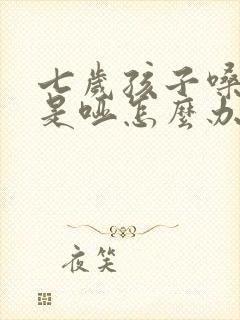 七歲孩子嗓
是啞怎麼办
夜笑